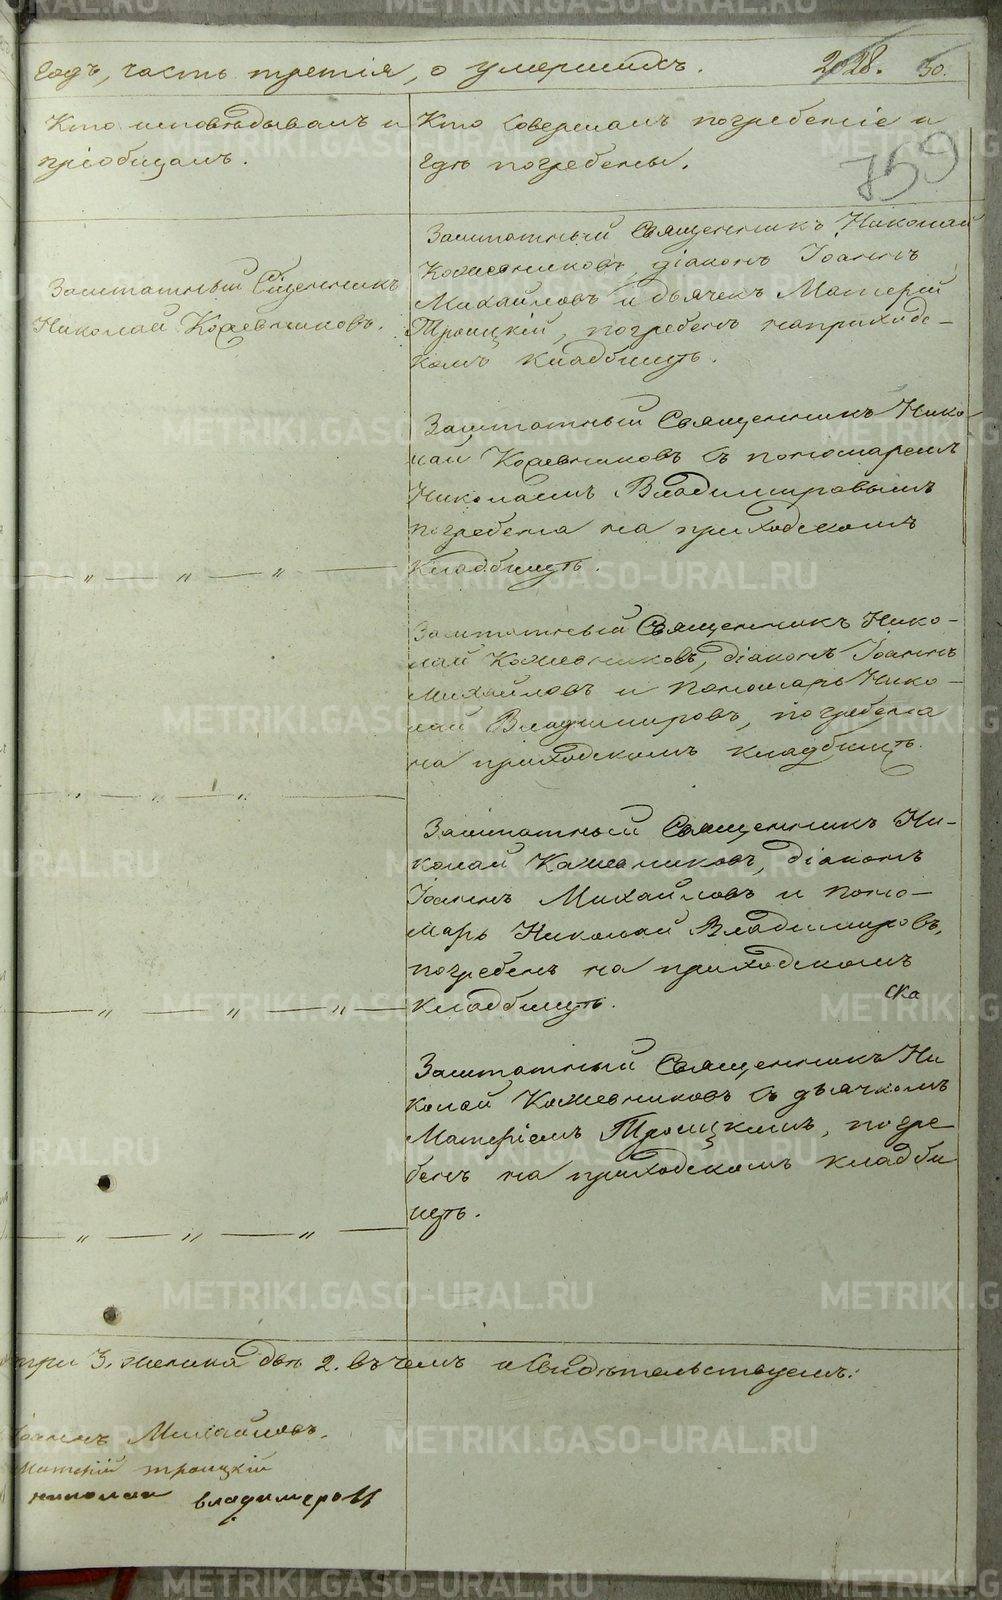 годъ, часть третія, о умершихъ. 2028. 30.
759
Кто исповѣдывалъ и
пріобщалъ.
Кто совершалъ погребеніе и
гдѣ погребены.
Заштатный Сщенникъ
Николай Кожевниковъ.
Заштатный Священникъ Николай
Кожевниковъ, діаконъ Іоаннъ
Михайловъ и дьячекъ Матѳей
Троицкій, погребенъ на приходс-
комъ кладбищѣ.
— „ — „ — „ —
Заштатный Священникъ Нико-
лай Кожевниковъ съ пономаремъ
Николаемъ Владимировымъ
погребена на приходскомъ
кладбищѣ.
— „ — „ —
Заштатный Священникъ Нико-
лай Кожевниковъ, діаконъ Іоаннъ
Михайловъ и пономарь Нико-
лай Владимировъ, погребена
на приходскомъ кладбищѣ.
— „ — „ — „ —
Заштатный Священникъ Ни-
колай Кожевниковъ, діаконъ
Іоаннъ Михайловъ и поно-
марь Николай Владимировъ,
погребенъ на приходскомъ
кладбищѣ.
ска
— „ — „ — „ —
Заштатный Священникъ Ни
колай Кожевниковъ съ дьячкомъ
Матѳіемъ Троицкимъ, погре
бенъ на приходскомъ кладби
щѣ.
три 3. женска двѣ 2. въ чемъ и свидѣтельствуемъ:
Іоаннъ Михайловъ.
Матѳій троицкій
николаи владимеровъ
METRIKI.GASO-URAL.RU